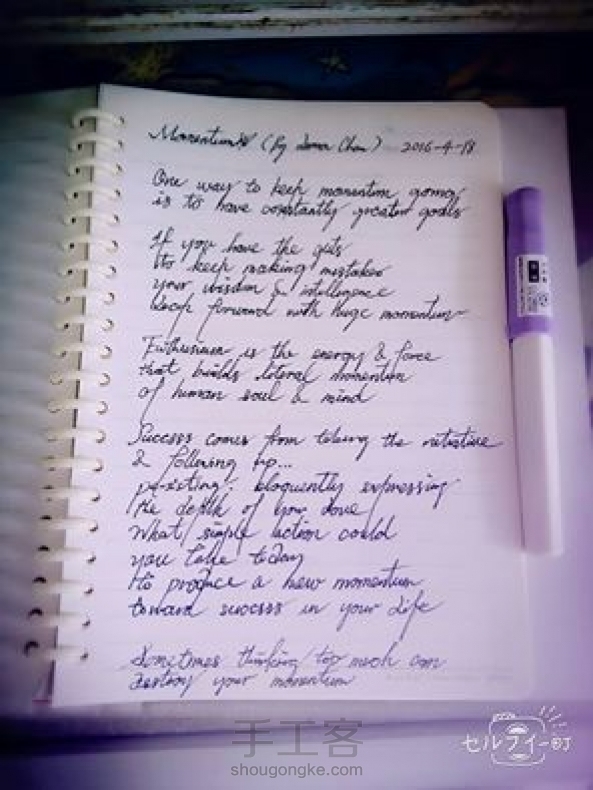 Momentum (By Chen) 2016-4-18
One way to keep momentum going
is to have constantly greater goals
If you have the guts
to keep making mistakes
your wisdom & intelligence
leap forward with huge momentum
Enthusiasm is the energy & force
that builds literal momentum
of human soul & mind
Success comes from taking the initiative
& following up...
persisting: eloquently expressing
the depth of your love
What simple action could
you take today
to produce a new momentum
toward success in your life
Sometimes thinking too much can
destroy your momentum
手工客
shougongke.com
セルフィー町